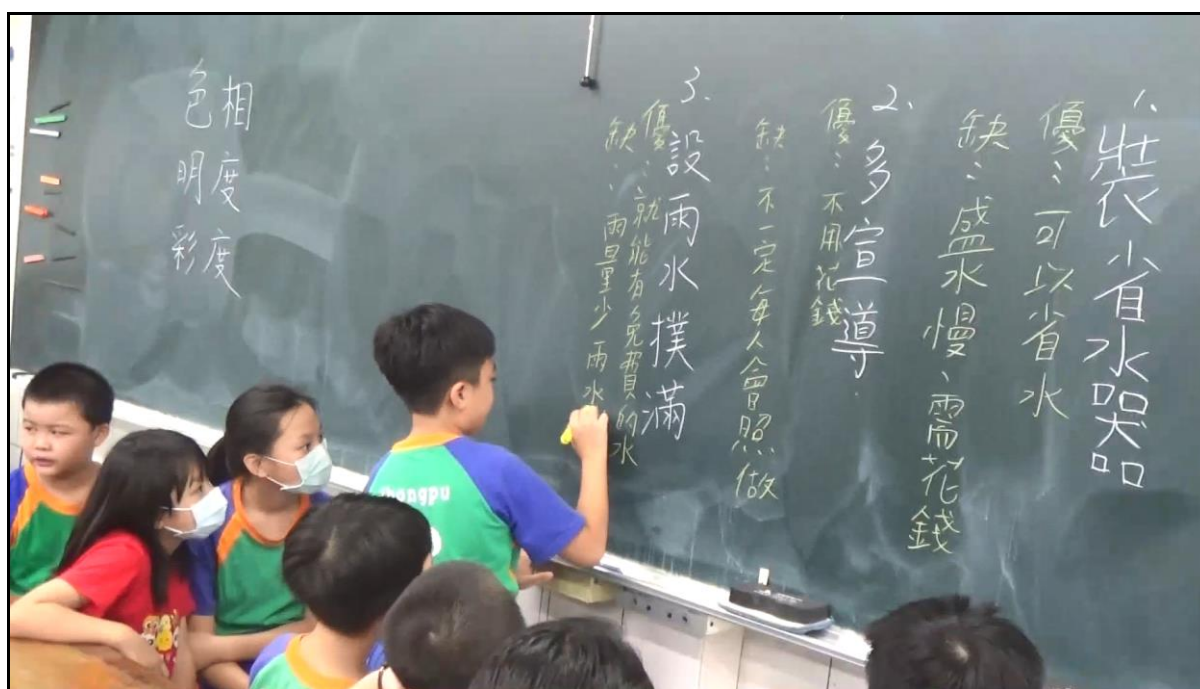 1、裝省水器
優：可以省水
缺：盛水慢、需花錢
2、多宣導
優：不用花錢
缺：不一定每人會照做
3、設雨水撲滿
優：就能有免費的水
缺：雨量少雨水
色相
明度
彩度